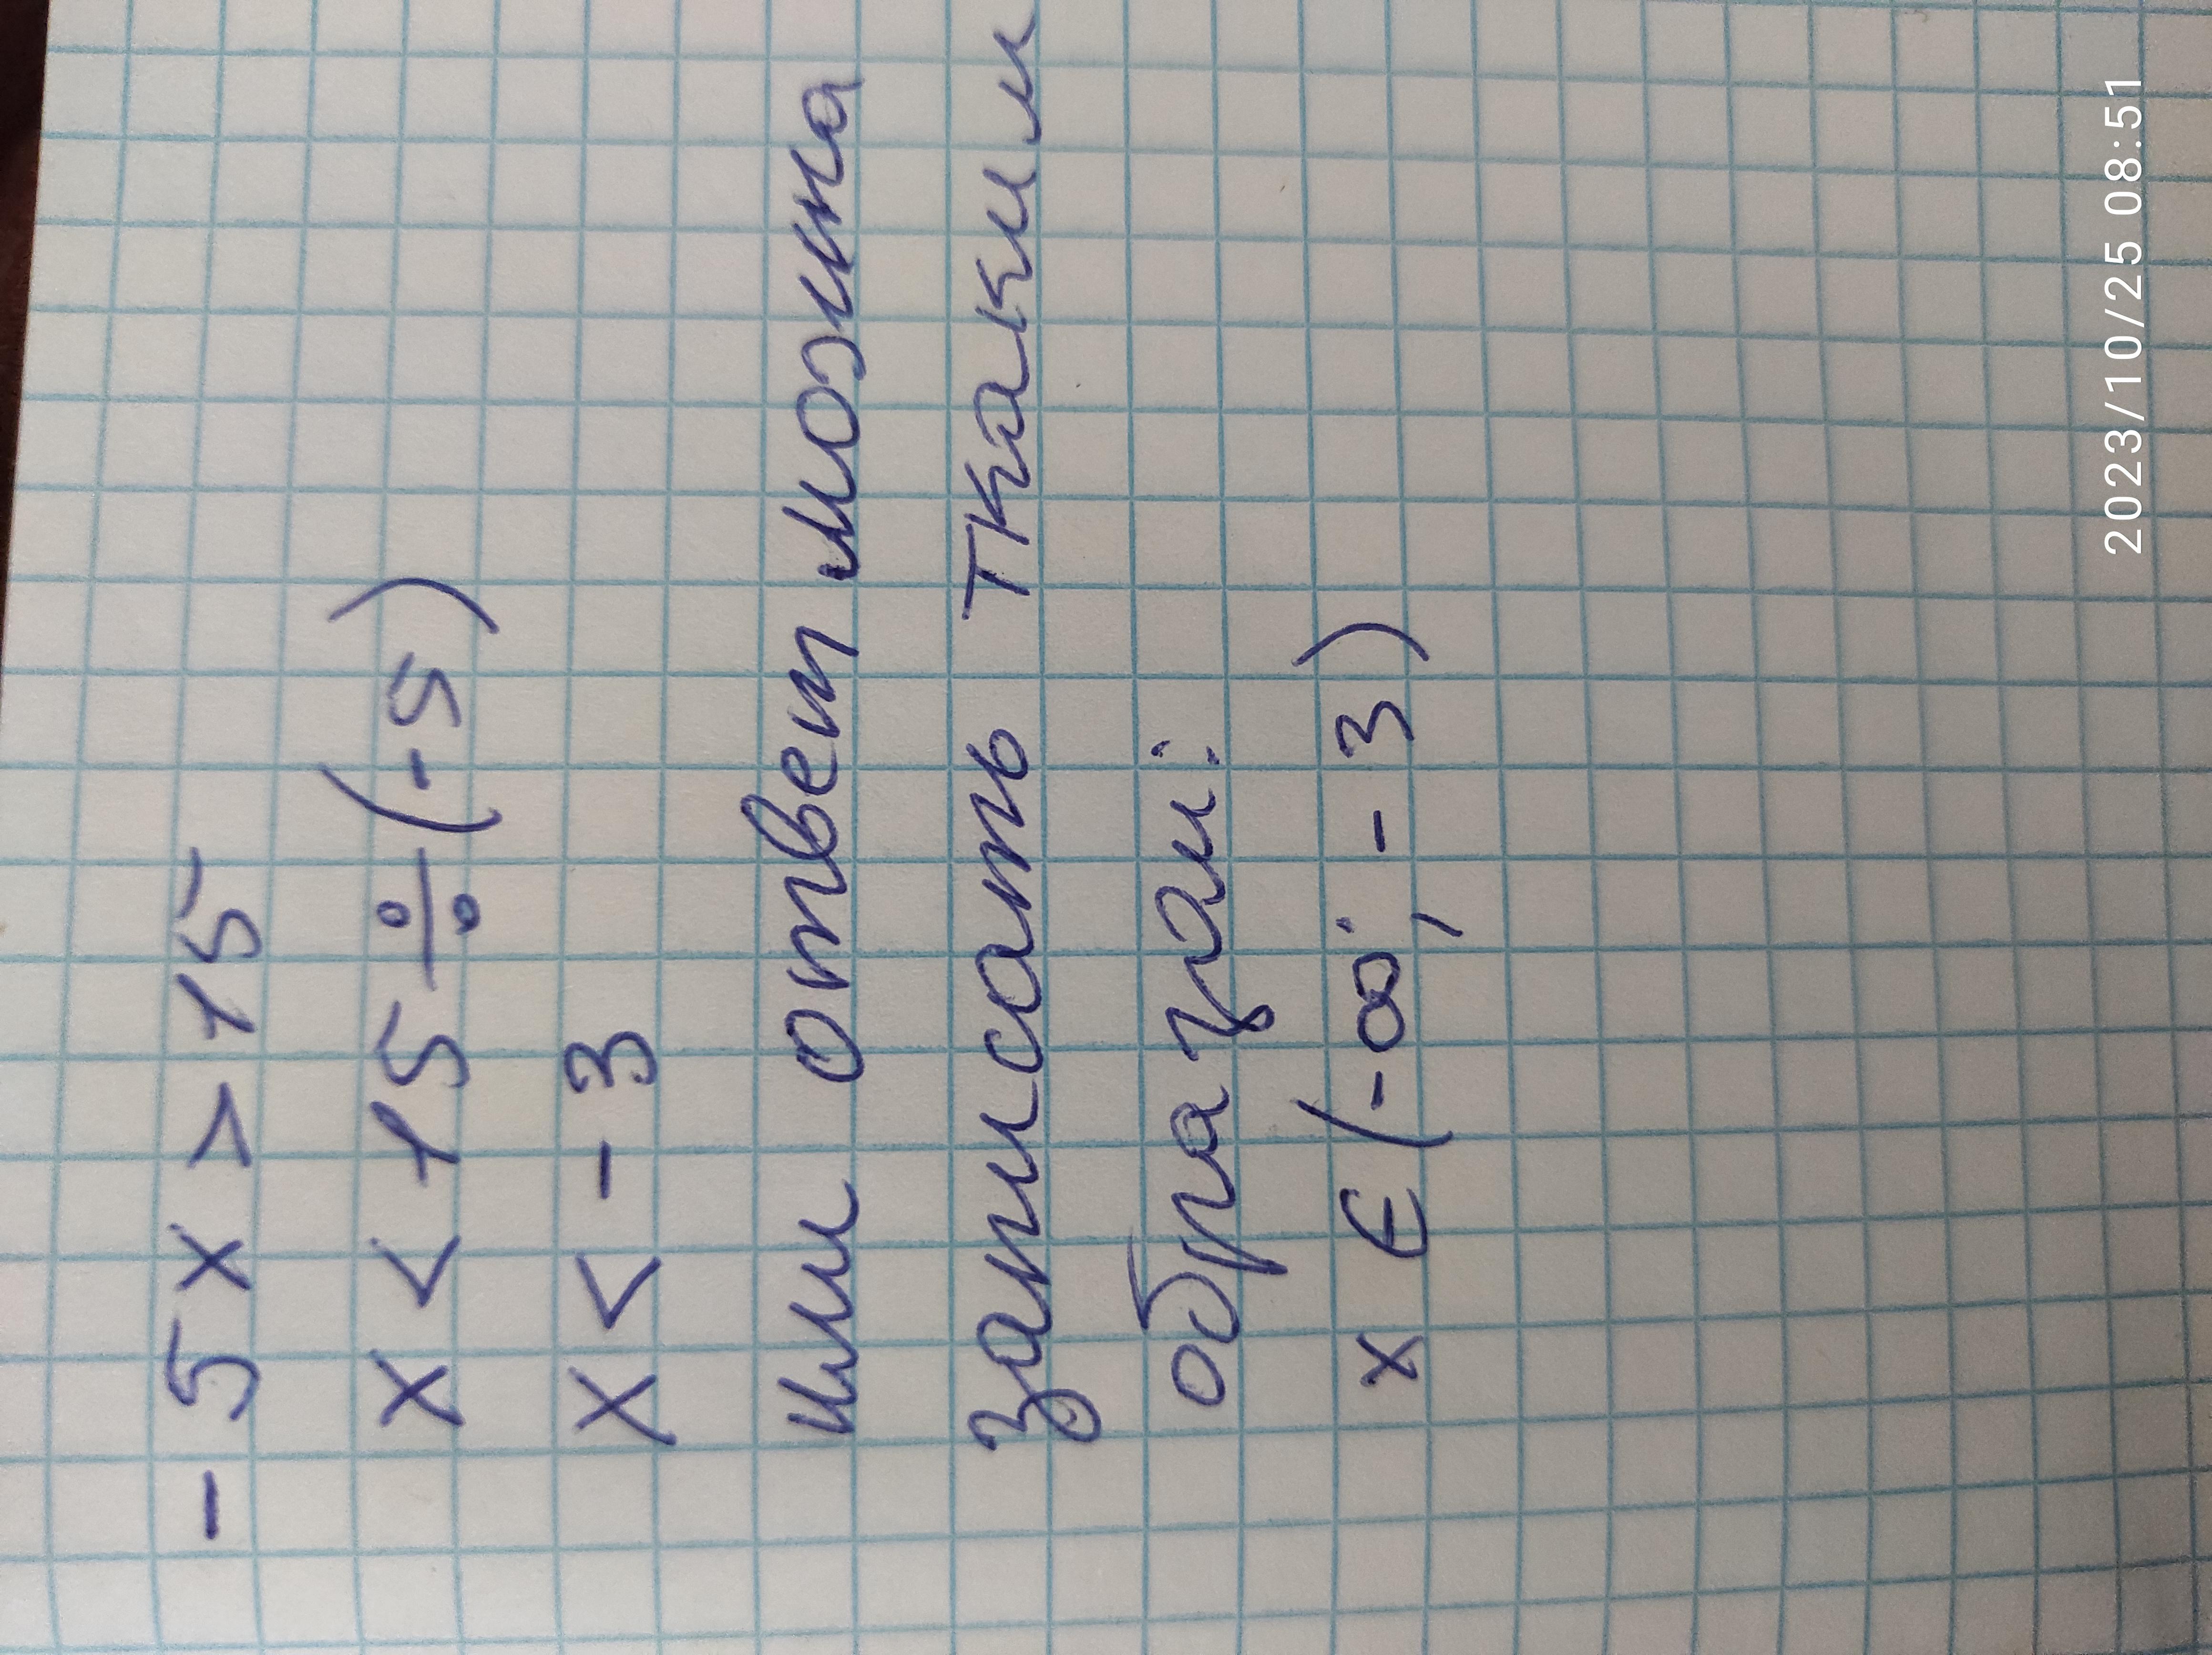 - 5 x > 15
x < 15 ÷ (-5)
x < - 3
или ответ можна
записать ткаким
образам:
x ∈ (-∞; - 3)
2023/10/25 08:51